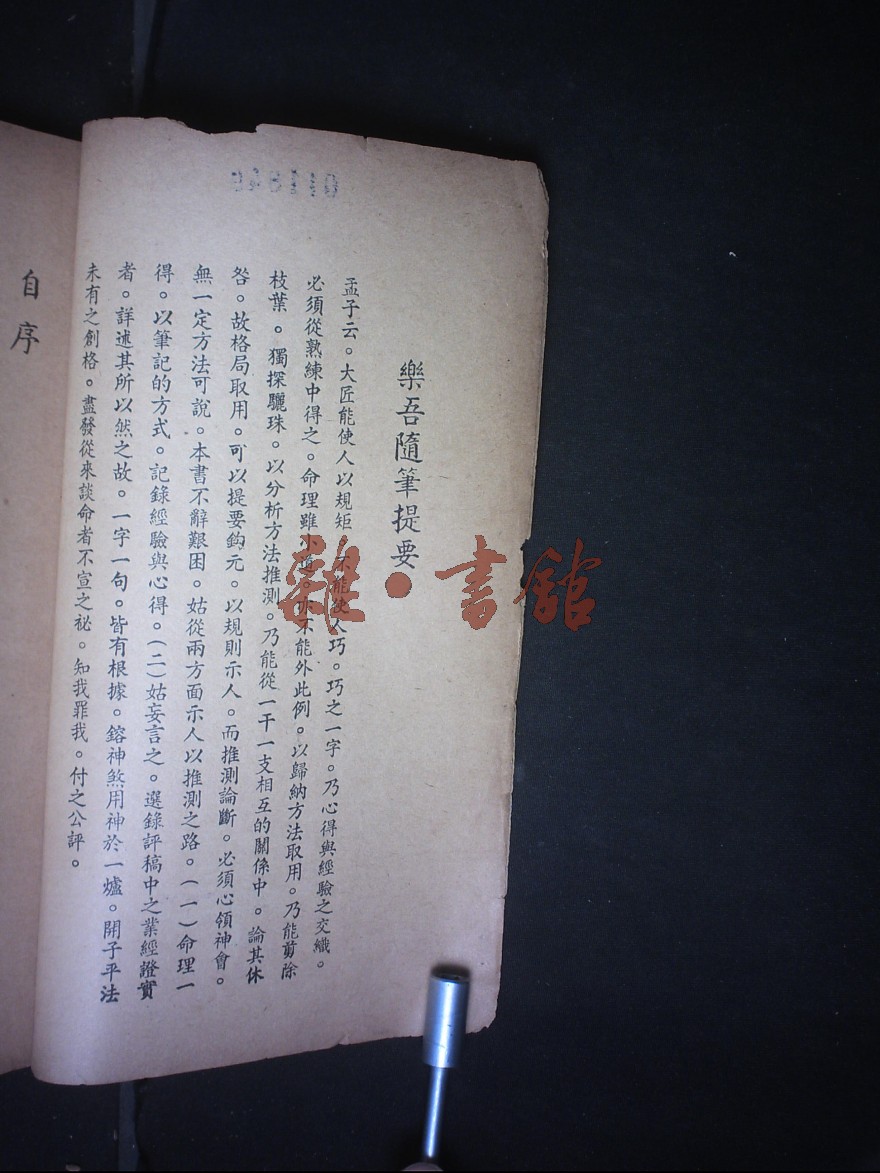 樂吾隨筆提要
孟子云。大匠能使人以規矩　不能使人巧。巧之一字。乃心得與經驗之交織。
必須從熟練中得之。命理雖小道。亦不能外此例。以歸納方法取用。乃能剪除
枝葉。獨探驪珠。以分析方法推測。乃能從一干一支相互的關係中。論其休
咎。故格局取用。可以提要鈎元。以規則示人。而推測論斷。必須心領神會。
無一定方法可說。本書不辭艱困。姑從兩方面示人以推測之路。（一）命理一
得。以筆記的方式。記錄經驗與心得。（二）姑妄言之。選錄評稿中之業經證實
者。詳述其所以然之故。一字一句。皆有根據。鎔神煞用神於一爐。開子平法
未有之創格。盡發從來談命者不宣之祕。知我罪我。付之公評。
自序
雜·書館